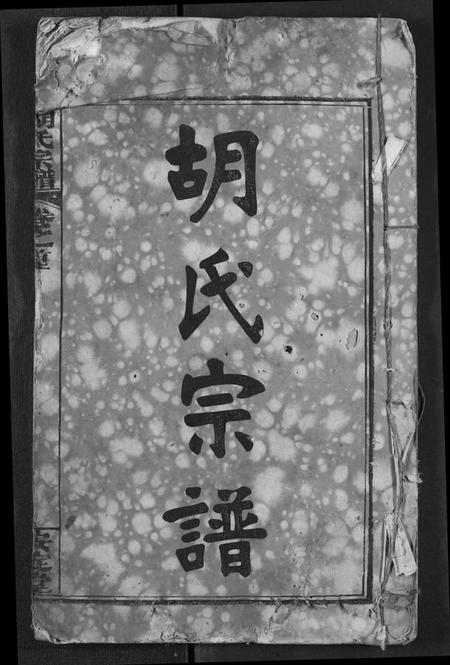 胡氏宗譜
胡氏宗譜